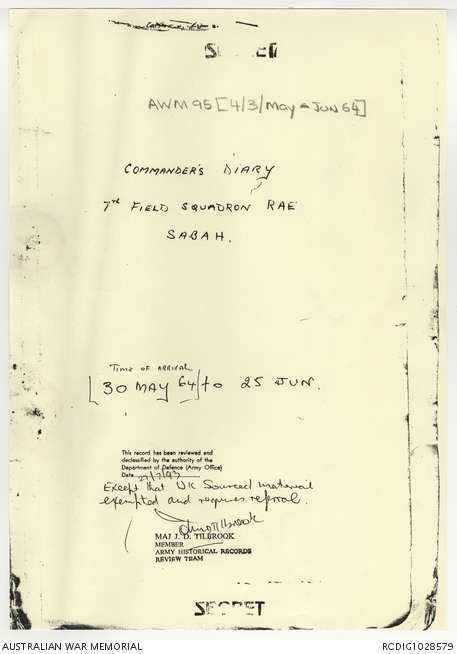 SECRET
AWM 95 [4/3/May - JUN 64]
COMMANDER'S DIARY
7th FIELD SQUADRON RAE
SABAH.
TIME OF ARRIVAL
[30 MAY 64] to 25 JUN.
This record has been reviewed and
declassified by the authority of the
Department of Defence (Army Office)
Date
Except that UK Sourced material
exempted and requires referral.
MAJ J. D. TILBROOK
MEMBER
ARMY HISTORICAL RECORDS
REVIEW TEAM
SECRET
AUSTRALIAN WAR MEMORIAL
RCDIG1028579